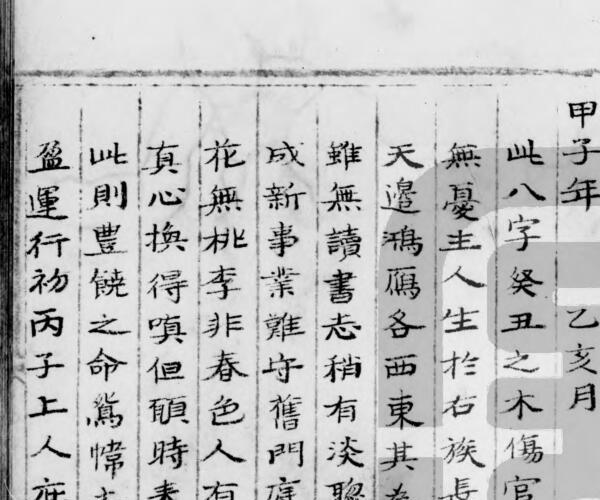 甲子年 乙亥月
此八字癸丑之木傷官
無憂生人生於右族長
天邊鴻鴈各西東其為
雖無讀書志稍有淡聰
成新事業難守舊門庭
花無桃李非春色人有
真心換得嗔但願時
此則豊饒之命鴛幃
盈運行初丙子上人